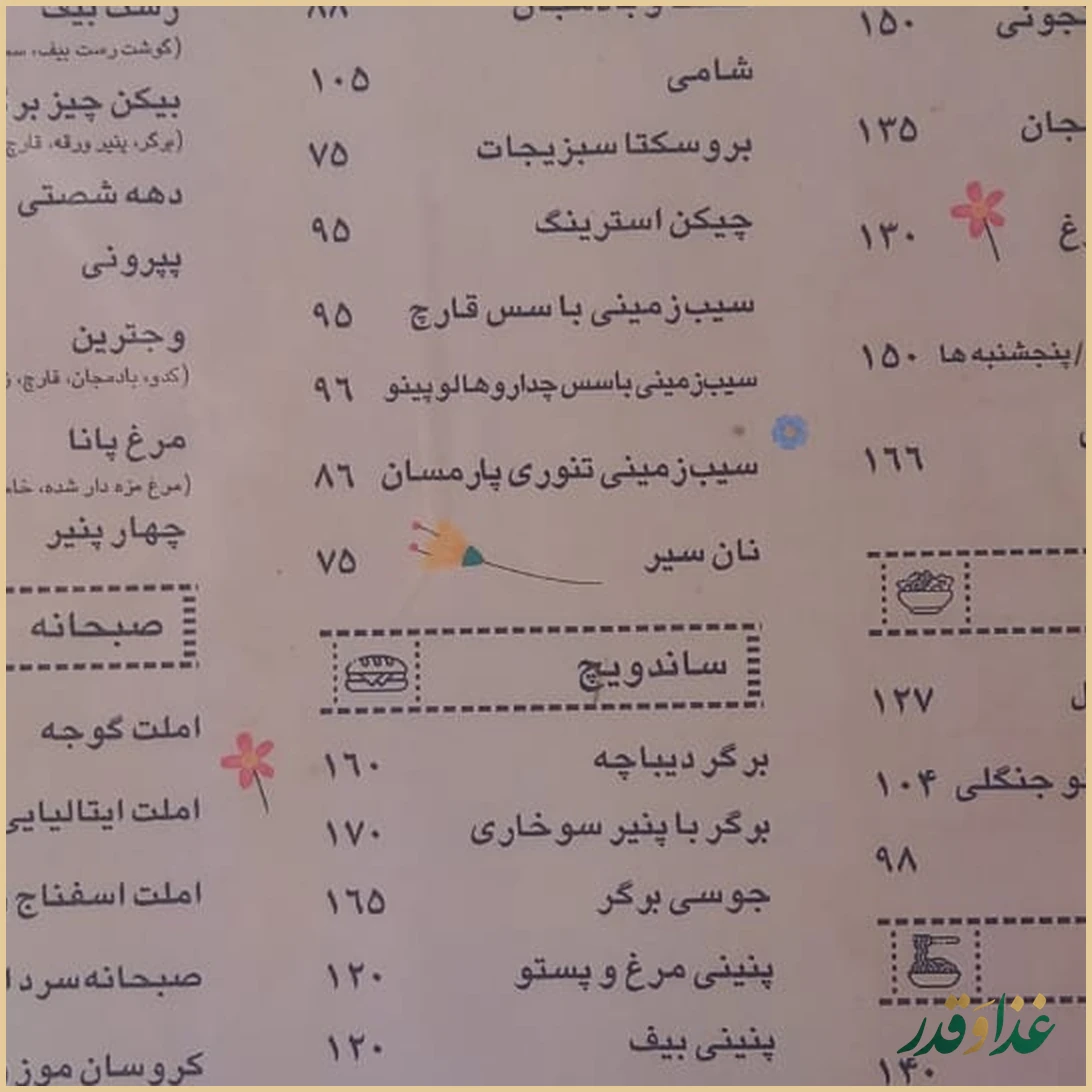 ۱۵۰
۱۳۵
۱۳۰
/پنجشنبه ها ۱۵۰
۱۶۶
۱۲۷
جنگلی ۱۰۴
۹۸
۱۴۰
۸۸
شامی ۱۰۵
بروسکتا سبزیجات ۷۵
چیکن استرینگ ۹۵
سیب‌زمینی با سس قارچ ۹۵
سیب‌زمینی باسس چدار و هالوپینو ۹۶
سیب‌زمینی تنوری پارمسان ۸۶
نان سیر ۷۵
ساندویچ
برگر دیباچه ۱۶۰
برگر با پنیر سوخاری ۱۷۰
جوسی برگر ۱۶۵
پنینی مرغ و پستو ۱۲۰
پنینی بیف ۱۲۰
رست بیف
(گوشت رست بیف،
بیکن چیز
(برگر، پنیر ورقه، قارچ
دهه شصتی
پپرونی
وجترین
(کدو، بادمجان، قارچ،
مرغ پانا
(مرغ مزه دار شده،
چهار پنیر
صبحانه
املت گوجه
املت ایتالیایی
املت اسفناج
صبحانه سرد
کروسان موز
غذا و قدر